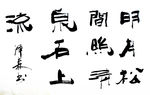 明月松
間照清
泉石上
流